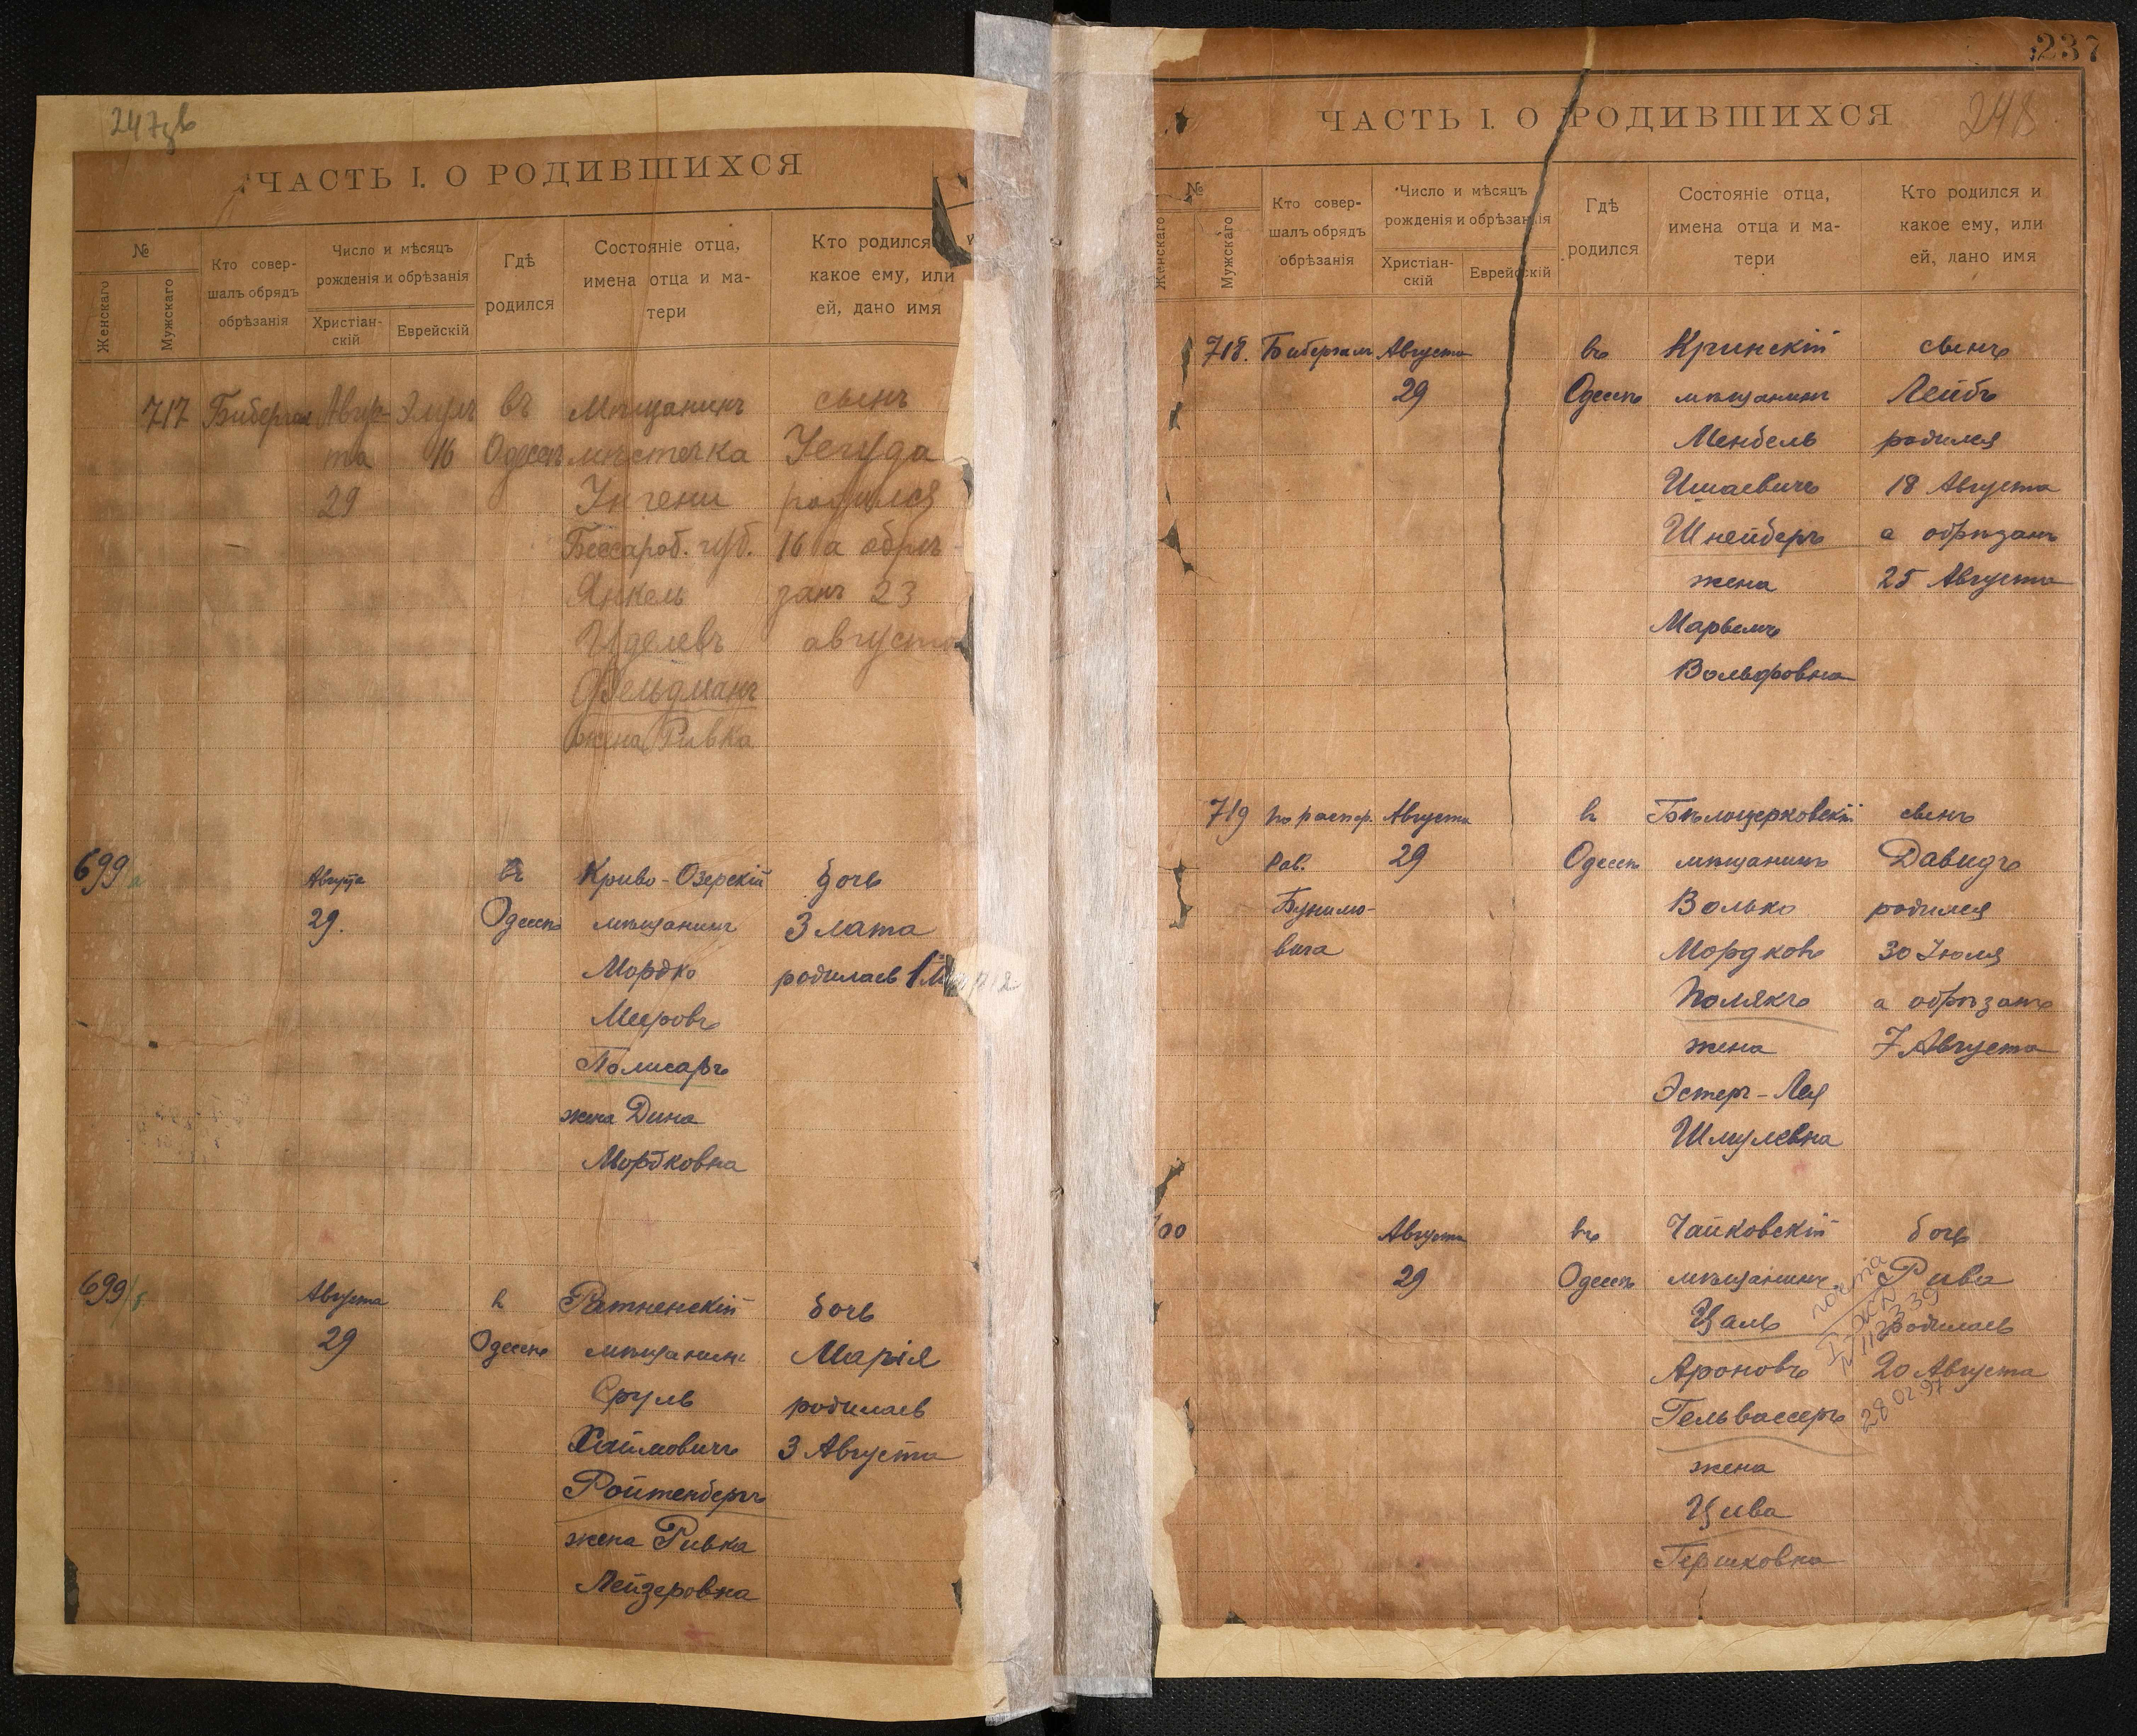 247 зв
ЧАСТЬ I. О РОДИВШИХСЯ
№
Женскаго
Мужскаго
Кто совер-
шалъ обрядъ
обрѣзанія
Число и мѣсяцъ
рожденія и обрѣзанія
Христіан-
скій
Еврейскій
Гдѣ
родился
Состояніе отца,
имена отца и ма-
тери
Кто родился и
какое ему, или
ей, дано имя
717 Бибергал Авгус- Элулъ въ Мѣщанинъ сынъ
та 16 Одессѣ мѣстечка Іегуда
29 Унгени родился
Бессароб. губ. 16 а обрѣ-
Янкель занъ 23
Иделевъ августа
Фельдманъ
жена Ривка
699 а Августа въ Криво-Озерскій дочь
29. Одессѣ мѣщанинъ Злата
Мордко родилась 1
Мееровъ
Полисаръ
жена Дина
Мордковна
699/б Августа в Ратненскій дочь
29 Одессѣ мѣщанинъ Марія
Сруль родилась
Хаимовичъ 3 Августа
Ройтенбергъ
жена Ривка
Лейзеровна
237
ЧАСТЬ I. О РОДИВШИХСЯ
248
№
Женскаго
Мужскаго
Кто совер-
шалъ обрядъ
обрѣзанія
Число и мѣсяцъ
рожденія и обрѣзанія
Христіан-
скій
Еврейскій
Гдѣ
родился
Состояніе отца,
имена отца и ма-
тери
Кто родился и
какое ему, или
ей, дано имя
718. Бибергал Августа въ Кринскій сынъ
29 Одессѣ мѣщанинъ Лейбъ
Мендель родился
Ишаевичъ 18 Августа
Шнейдеръ а обрѣзанъ
жена 25 Августа
Марьемъ
Вольфовна
719 по распор. Августа в Бѣлоцерковскій сынъ
Рав. 29 Одессѣ мѣщанинъ Давидъ
Волько родился
Мордковъ 30 Іюля
Полякъ а обрѣзанъ
жена 7 Августа
Эстеръ-Лея
Шмулевна
700 Августа въ Чайковскій дочь
29 Одессѣ мѣщанинъ Рива
Цаль родилась
Ароновъ 20 Августа
Гельвассеръ
жена
Цива
Гершковна
28 02 97